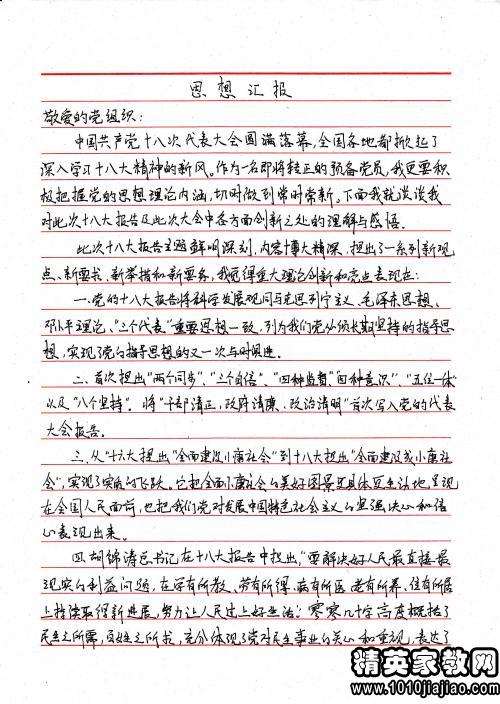 思想汇报
敬爱的党组织：
中国共产党十八次代表大会圆满落幕，全国各地都掀起了
深入学习十八大精神的新风。作为一名即将转正的预备党员，我更要积
极把握党的思想理论内涵，切时做到常时常新。下面我就谈谈我
对此次十八大报告及此次大会中各方面创新之处的理解与感悟。
此次十八大报告主题鲜明深刻，内容博大精深，提出了一系列新观
点、新要书、新举措和新要务，我觉得重大理论创新和亮点表现在：
一.党的十八大报告将科学发展观同马克思列宁主义、毛泽东思想、
邓小平理论、"三个代表"重要思想一致，列为我们党必须长期坚持的指导思
想，实现了党的指导思想的又一次与时俱进。
二、首次提出"两个同步"、"三个自信"、"四种监督"、"四种意识"、"五位一体"
以及"八个坚持"。将"干部清正，政府清廉，政治清明"首次写入党的代表
大会报告。
三、从"十六大提出"全面建设小康社会"到十八大提出"全面建成小康社
会"，实现了实质的飞跃，它把全面小康社会的美好图景更具体更生动地呈现
在全国人民面前，也把我们党对发展中国特色社会主义的坚强决心和信
心表现出来。
四.胡锦涛总书记在十八大报告中提出，"要解决好人民最直接最
现实的利益问题，在学有所教、劳有所得、病有所医、老有所养、住有所居
上持续取得新进展，努力让人民过上好生活"。寥寥几十字高度概括了
民生之所需，百姓之所求，充分体现了党对民生事业的关心和重视，表达了
精英家教网
www.1010jiajiao.com